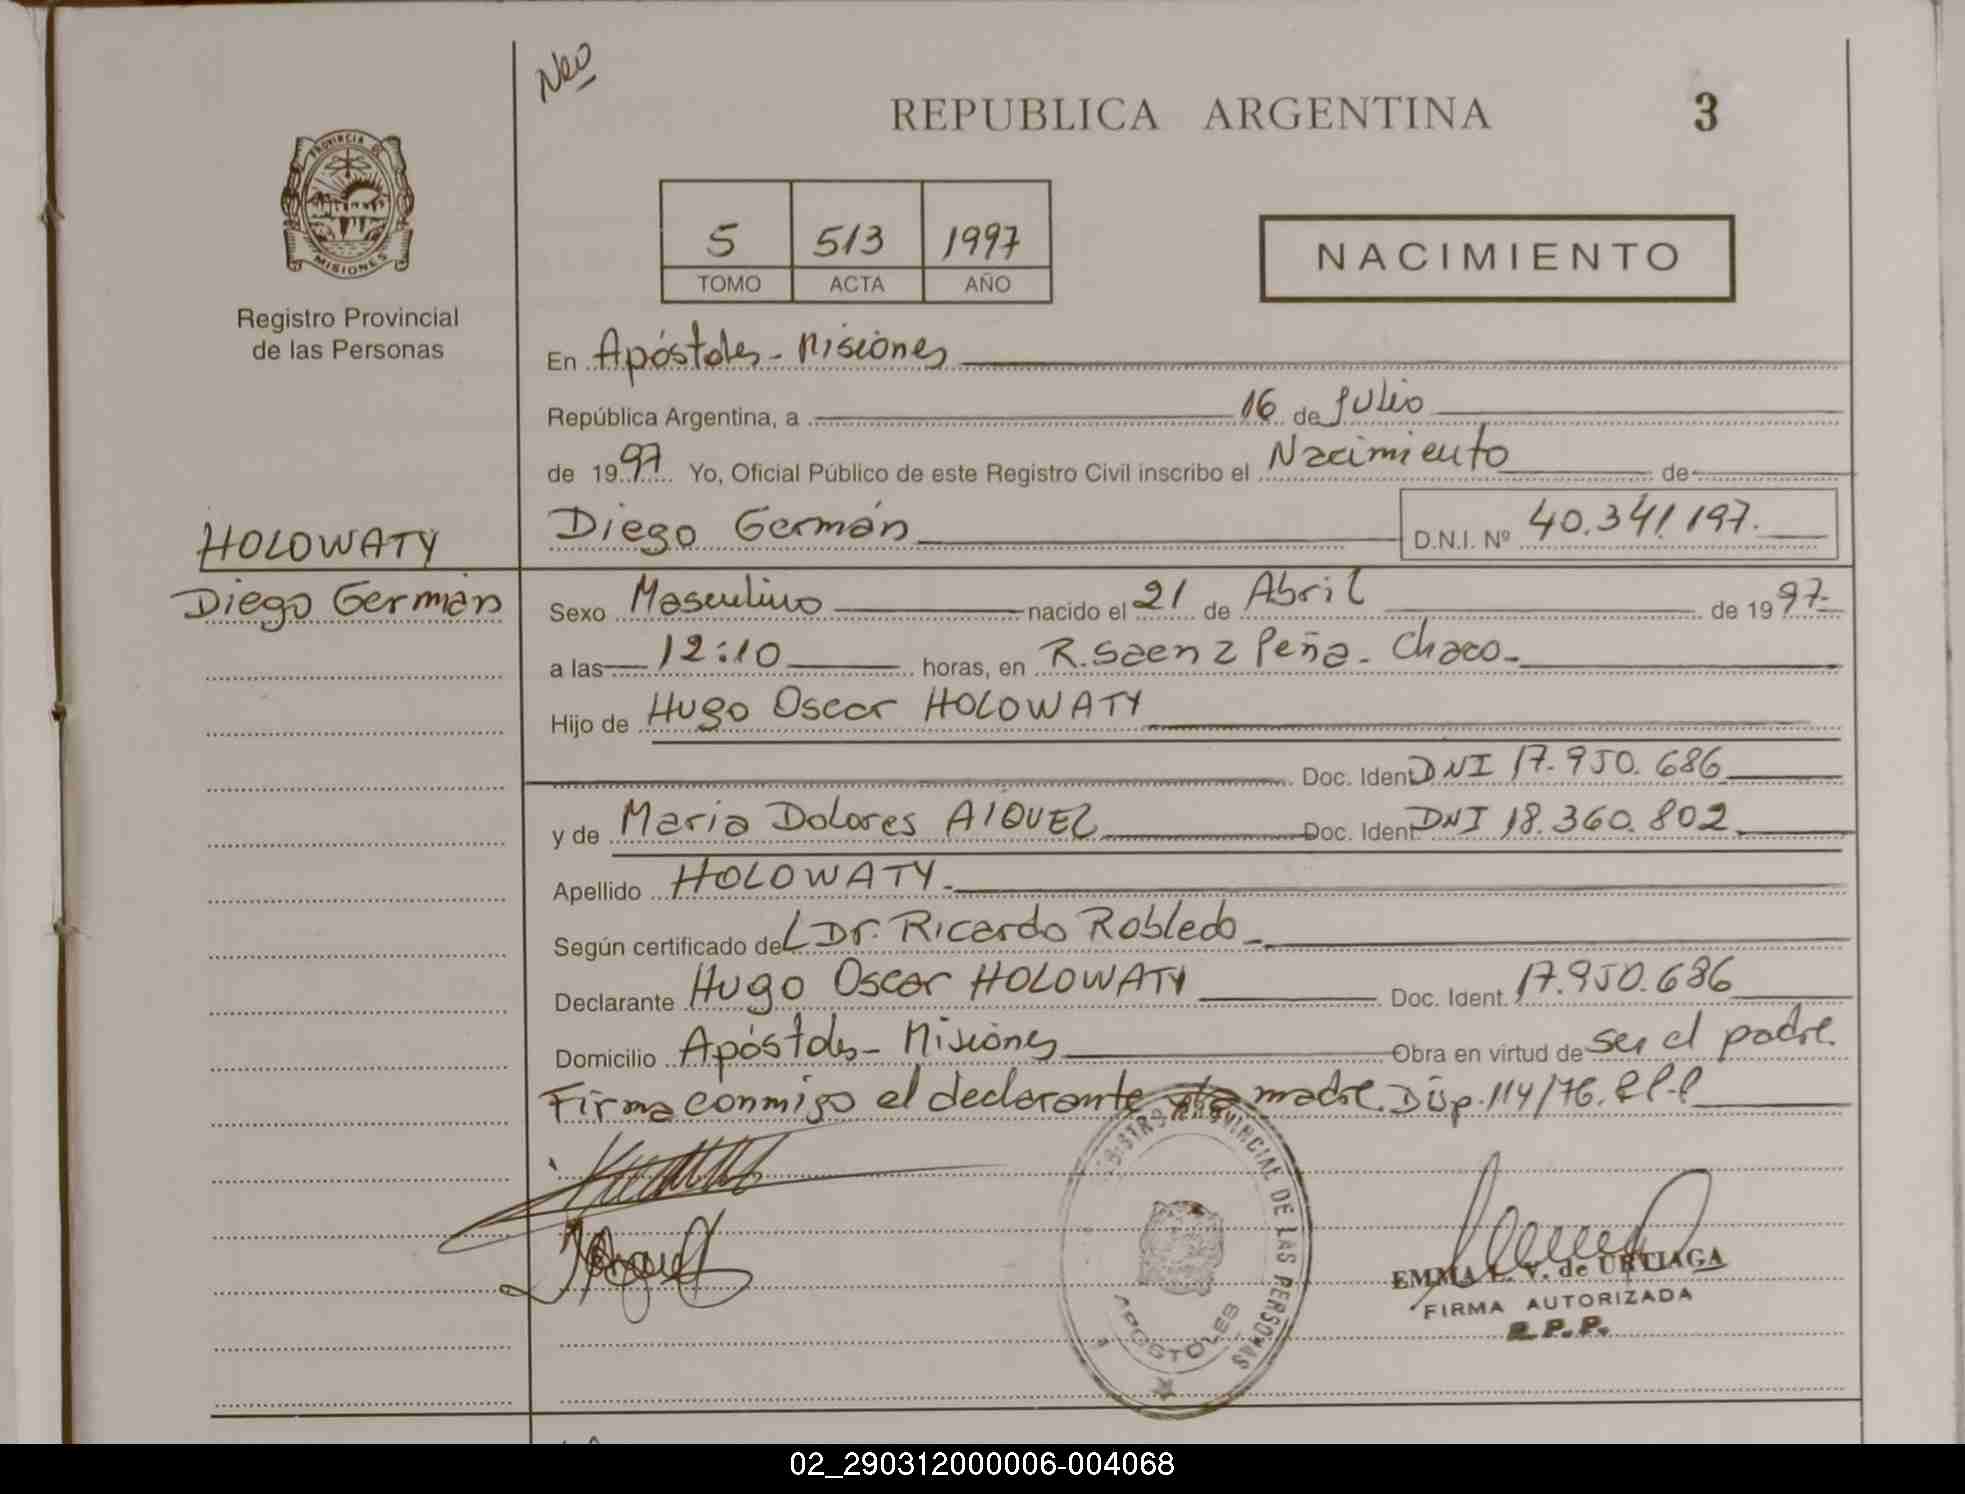 Neo
REPUBLICA ARGENTINA 3
PROVINCIA DE MISIONES
Registro Provincial
de las Personas
5 513 1997
TOMO ACTA AÑO
NACIMIENTO
En Apóstoles - Misiones
República Argentina, a 16 de Julio
de 1997 Yo, Oficial Público de este Registro Civil inscribo el Nacimiento de
HOLOWATY
Diego Germán
Diego Germán D.N.I. Nº 40.341.197.
Sexo Masculino nacido el 21 de Abril de 1997-
a las 12:10 horas, en R. Saenz Peña - Chaco -
Hijo de Hugo Oscar HOLOWATY
Doc. Ident. DNI 17.950.686
y de Maria Dolores AIQUEL Doc. Ident. DNI 18.360.802
Apellido HOLOWATY -
Según certificado del Dr. Ricardo Robledo -
Declarante Hugo Oscar HOLOWATY Doc. Ident. 17.950.686
Domicilio Apóstoles - Misiones Obra en virtud de ser el padre.
Firma conmigo el declarante y la madre. Disp. 114/76.
REGISTRO PROVINCIAL DE LAS PERSONAS
APOSTOLES
EMMA L. V. de URTIAGA
FIRMA AUTORIZADA
R.P.P.
02_290312000006-004068